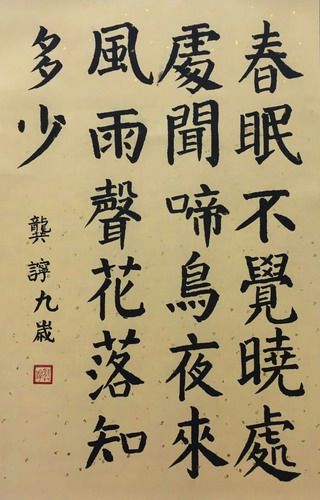 春眠不覺曉處
處聞啼鳥夜來
風雨聲花落知
多少
龔 九歲